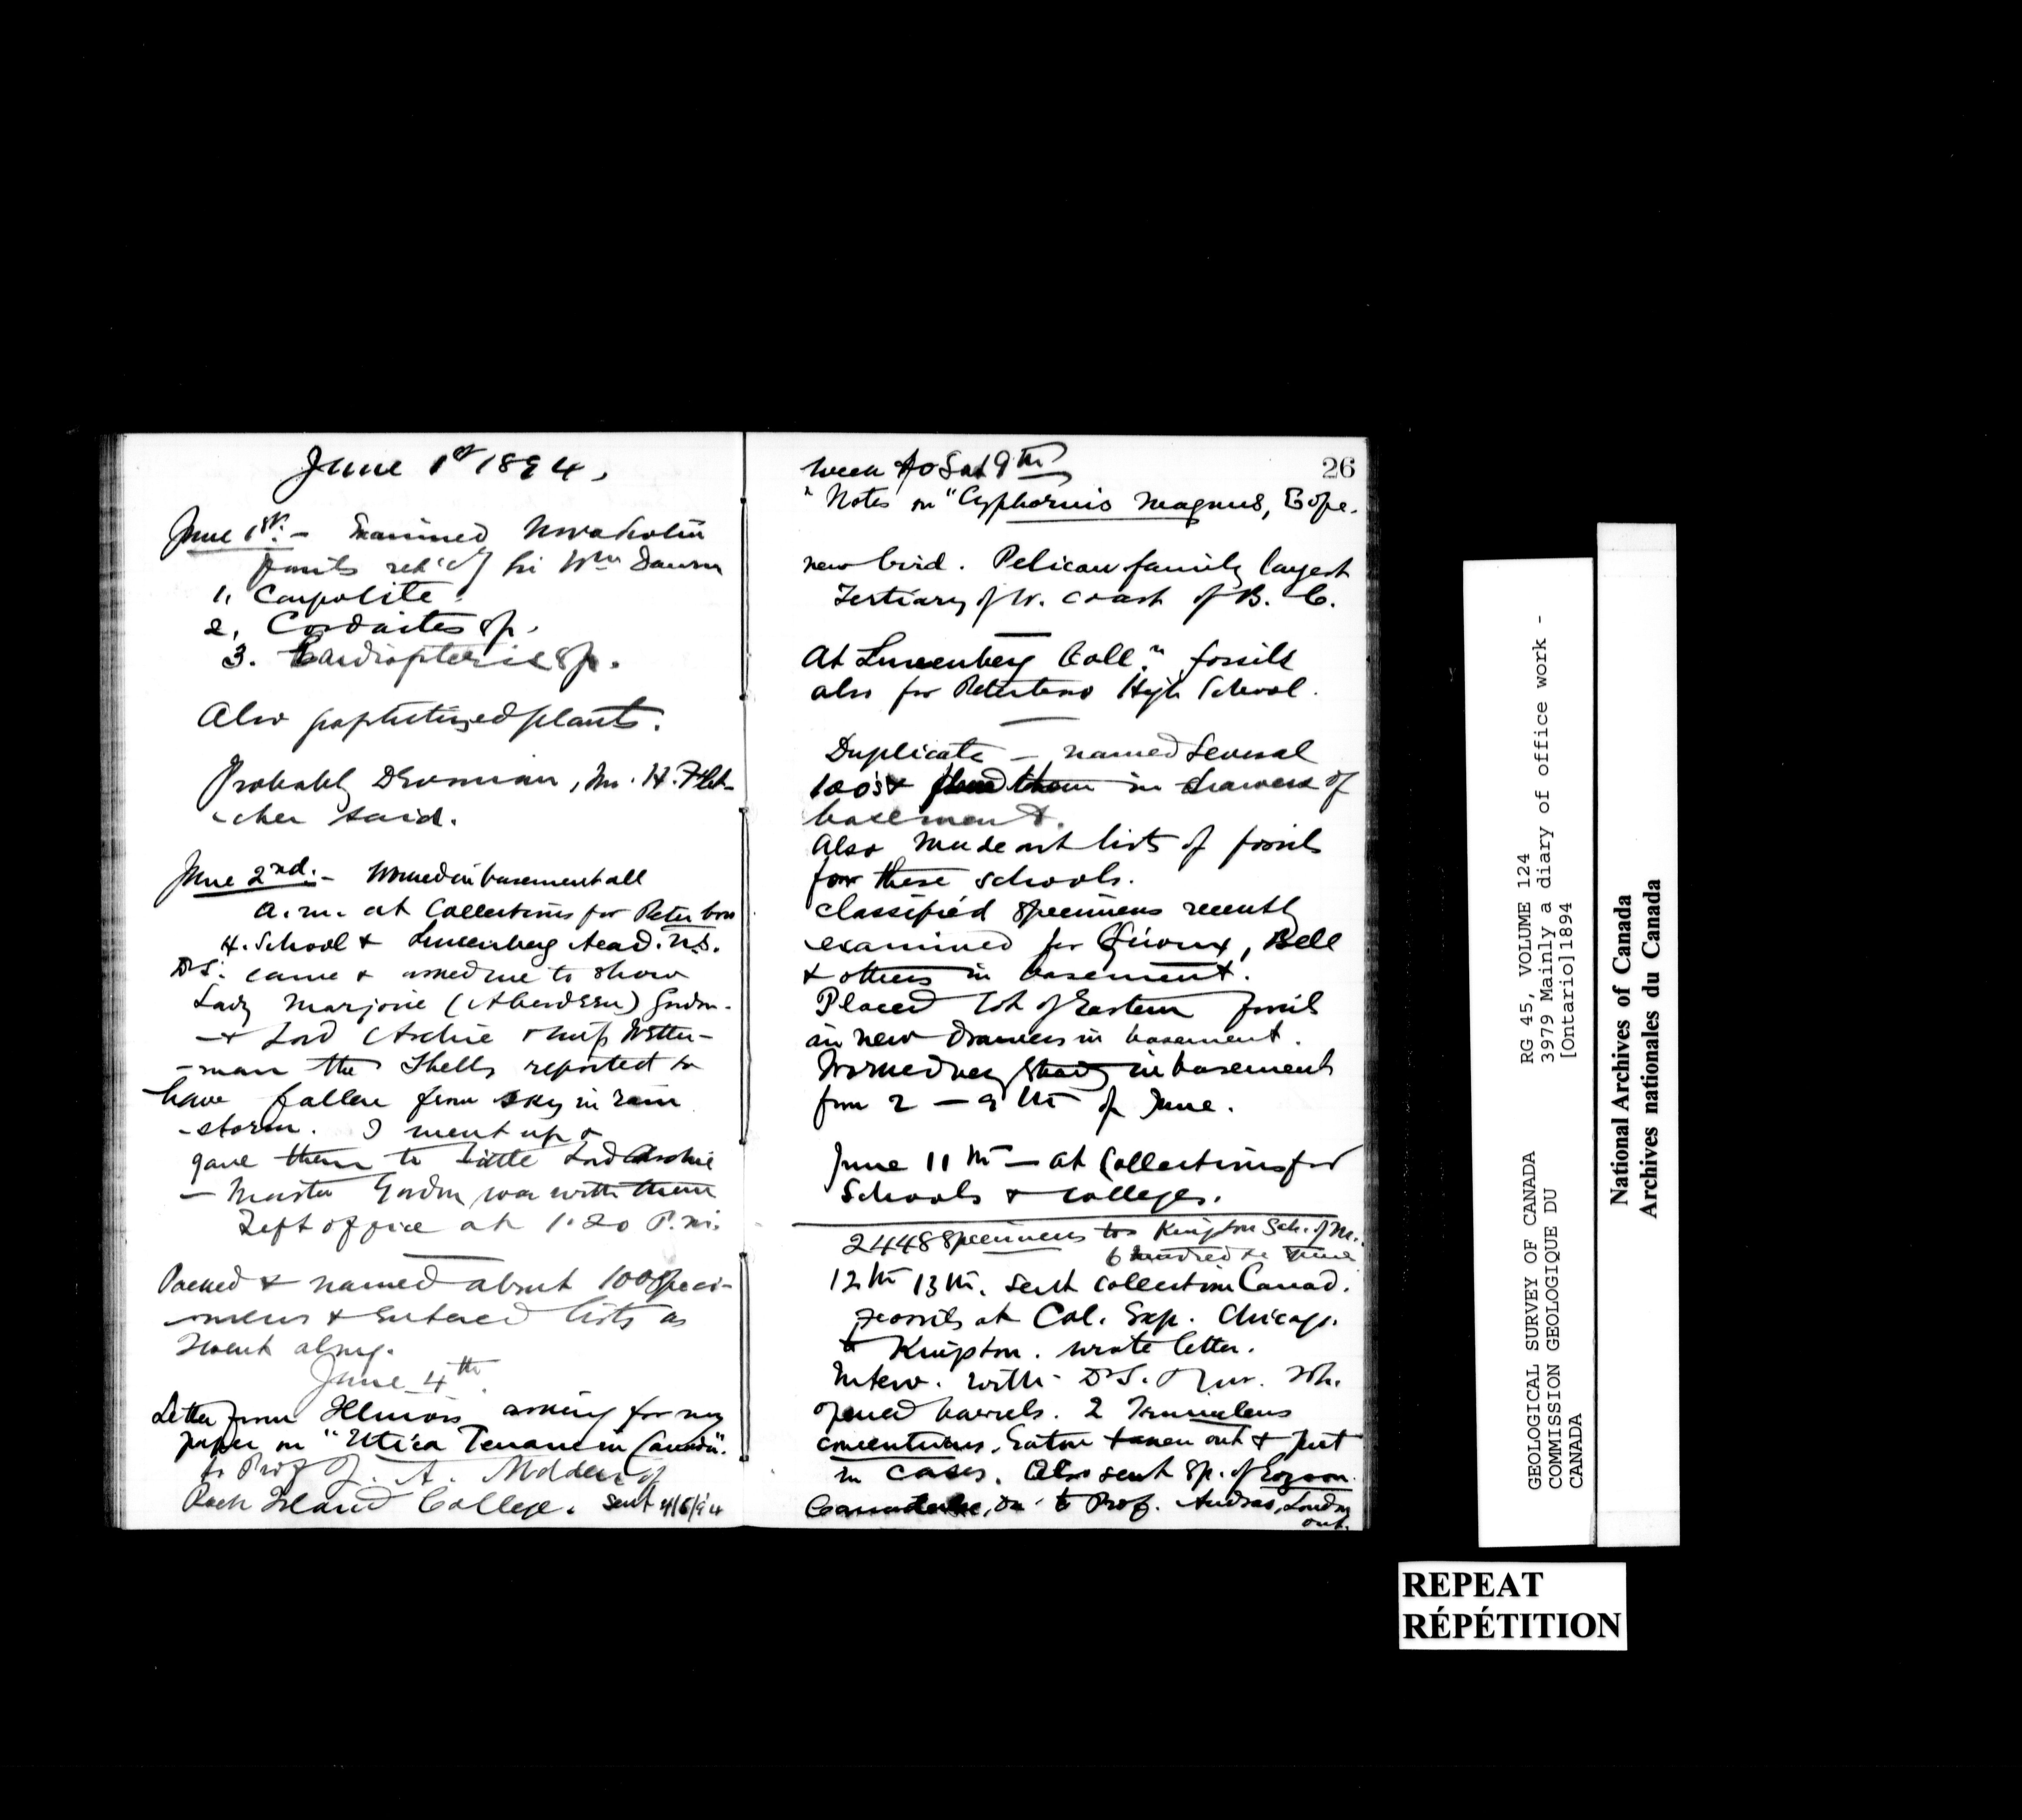 June 1st 1894.
June 1st. - Examined Nova Scotia
fossils ret'd of Sir Wm Dawson
1. Carpolite.
2. Cordaites sp.
3. Cardiopteris sp.
Also graphitized plants.
Probably Devonian, Mr. H. Flet-
cher said.
June 2nd. - Worked in basement all
a.m. at Collections for Peterboro
H. School & Lunenberg Acad. N.S.
Dr S. came & asked me to show
Lady Marjorie (Aberdeen) Gordon -
- & Lord Archie & Miss Wetter-
-man the shells reported to
have fallen from sky in rain
-storm. I went up &
gave them to little Lord Archie
- Master Gordon was with them
Left office at 1.20 P.m.
Packed & named about 100 speci-
-mens & entered lists as
I went along.
June 4th
Letter from Illinois asking for my
paper on "Utica Terrane in Canada".
to Prof J. A. Udden of
Rock Island College. Sent 4/6/94
26
Week to Sat 9th
"Notes on "Cyphornis magnus, Cope.
new bird. Pelican family largest
Tertiary of W. coast of B. C.
At Lunenberg Coll.n fossils
also for Peterboro High School.
Duplicate - named several
100's & placed them in drawers of
basement.
Also made out lists of fossils
for these schools.
Classified specimens recently
examined for Giroux, Bell
& others in basement.
Placed lot of Eastern fossils
in new drawers in basement.
Worked very steady in basement
from 2 - 9th of June.
June 11th - at Collections for
Schools & Colleges.
2448 specimens to Kingston Sch. of M.
6 hundred &
12th 13th. sent collection Canad.
fossils at Col. Exp. Chicago.
to Kingston. wrote letter.
Interv. with Dr S. & Mr. Wh.
opened barrels. 2 Trinucleus
concentricus, Eaton taken out & put
in cases. Also sent sp. of Eozoon
Canadense, Dn. to Prof. Andras, London
Ont.
GEOLOGICAL SURVEY OF CANADA
COMMISSION GEOLOGIQUE DU
CANADA
RG 45, VOLUME 124
3979 Mainly a diary of office work -
[Ontario]1894
National Archives of Canada
Archives nationales du Canada
REPEAT
RÉPÉTITION